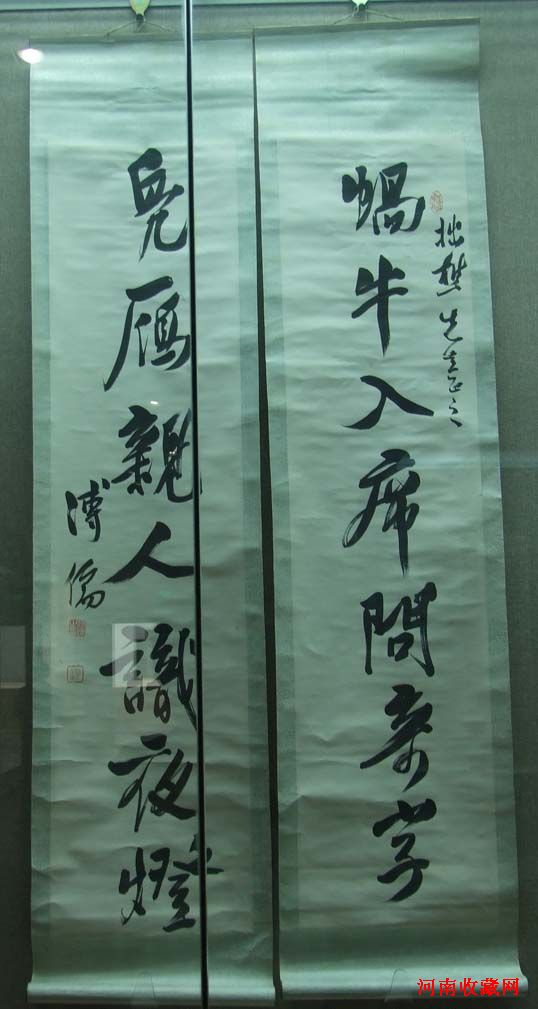 拙樊先生正之
蝸牛入席問奇字
鳧雁親人識夜燈
溥儒
河南收藏网